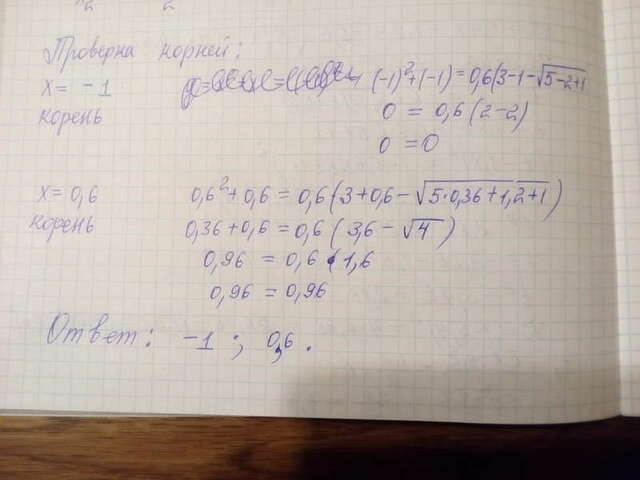 Проверка корней:
x = -1 (-1)²+(-1) = 0,6(3-1-√5-2+1
корень 0 = 0,6(2-2)
0 = 0
x = 0,6 0,6²+0,6 = 0,6(3+0,6-√5·0,36+1,2+1)
корень 0,36+0,6 = 0,6(3,6-√4)
0,96 = 0,6 · 1,6
0,96 = 0,96
Ответ: -1 ; 0,6.